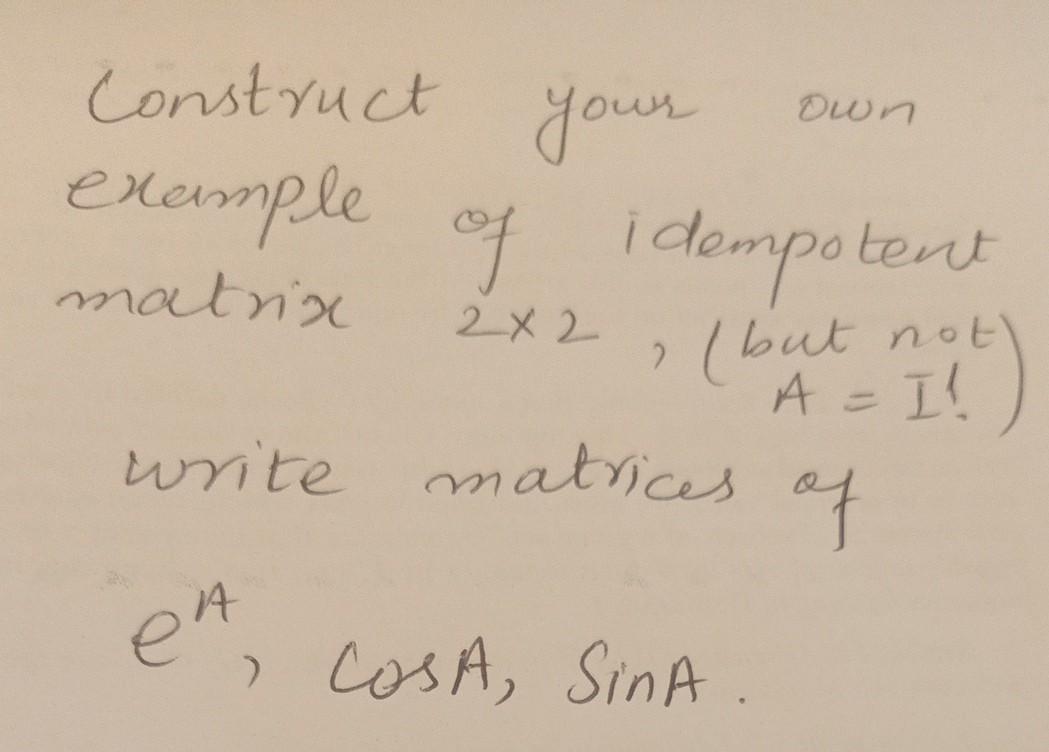 Construct your own
example of idempotent
matrix 2×2, (but not
A = I!)
write matrices of
e^A, CosA, SinA.